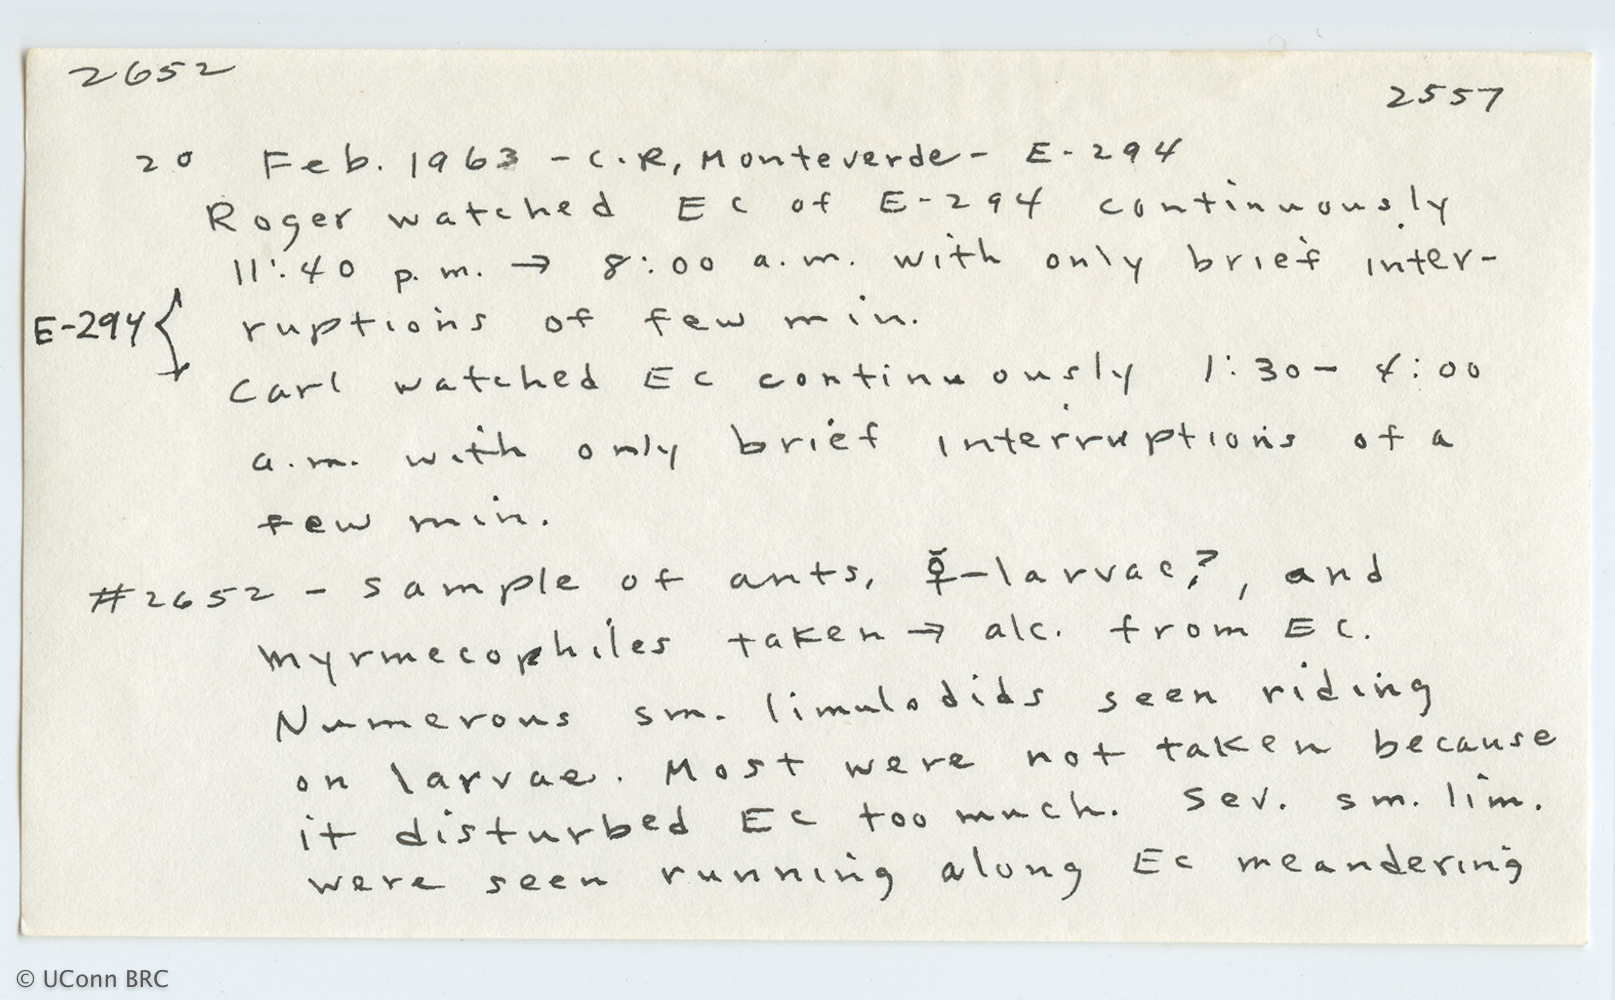 2652
2557
20 Feb. 1963 - C.R, Monteverde - E-294
Roger watched EC of E-294 continuously
11:40 p.m. → 8:00 a.m. with only brief inter-
E-294 { ruptions of few min.
Carl watched EC continuously 1:30 - 4:00
a.m. with only brief interruptions of a
few min.
#2652 - sample of ants, ☿-larvae?, and
myrmecophiles taken → alc. from EC.
Numerous sm. limulodids seen riding
on larvae. Most were not taken because
it disturbed EC too much. Sev. sm. lim.
were seen running along EC meandering
© UConn BRC